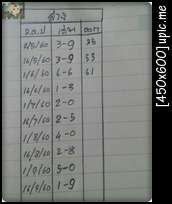 ว.ด.ป เด่น ออก
2/5/60 3-9 35
16/5/60 3-9 53
1/6/60 6-6 61
16/6/60 1-3
1/7/60 2-0
16/7/60 2-5
1/8/60 4-0
16/8/60 2-8
1/9/60 5-0
16/9/60 1-9
[450x600] upic.me